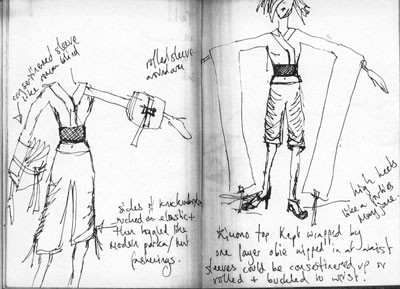 consertinered sleeve
like roman blind
rolled sleeve
sides of knickerbockers
ruched on elastic +
then toggled like
modern parka /
fastenings.
high heels
like a
Mary Jane
Kimono top kept wrapped by
one layer obie nipped in at waist
sleeves could be consertinered up or
rolled + buckled to wrist.